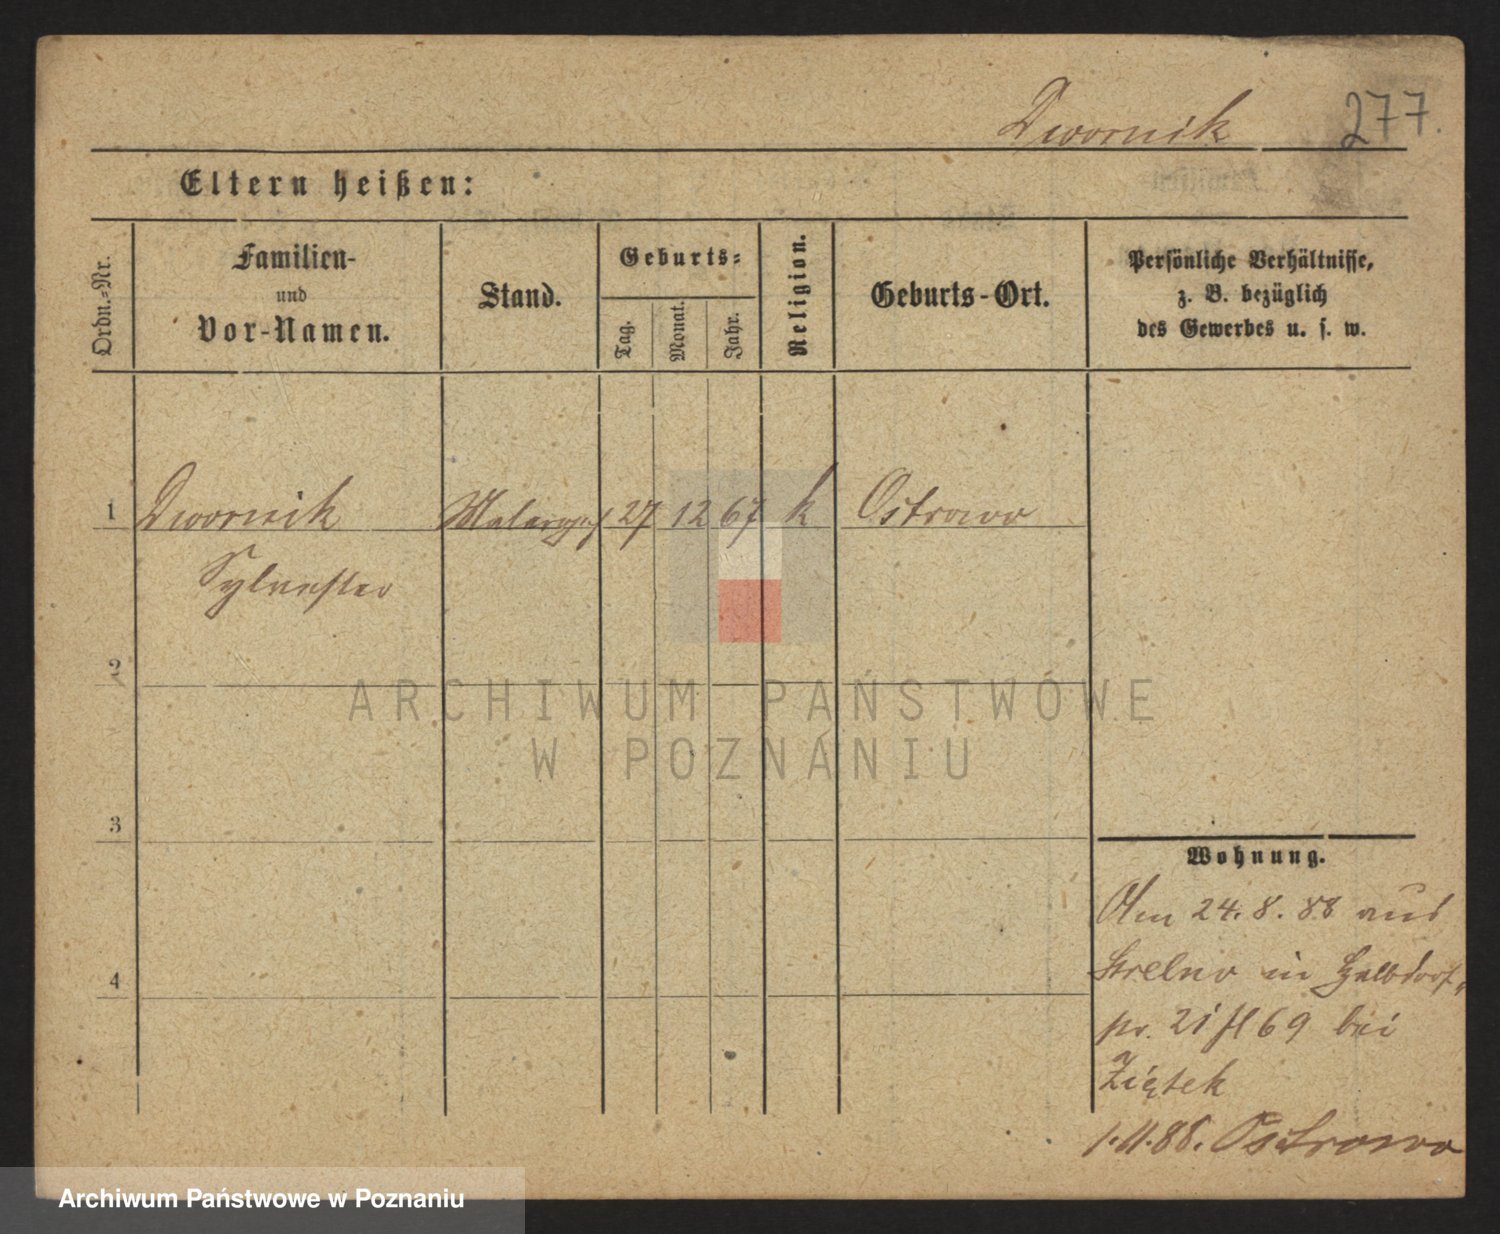 Dwornik 277.
Eltern heißen:
Ordn.-Nr.
Familien-
und
Vor-Namen.
Stand.
Geburts-
Tag.
Monat.
Jahr.
Religion.
Geburts-Ort.
Persönliche Verhältnisse,
z. B. bezüglich
des Gewerbes u. s. w.
1 Dwornik 27 12 67 k Ostrowo
Sylvester
2
3
4
Wohnung.
Am 24.8.88 aus
Strelno in
pr. 21 69 bei
Ziętek
1.11.88. Ostrowo
ARCHIWUM PAŃSTWOWE
W POZNANIU
Archiwum Państwowe w Poznaniu